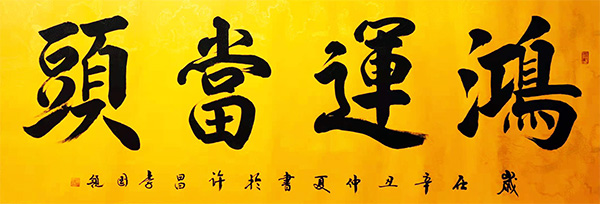 鴻運當頭
歲在辛丑仲夏書於许昌李国趂